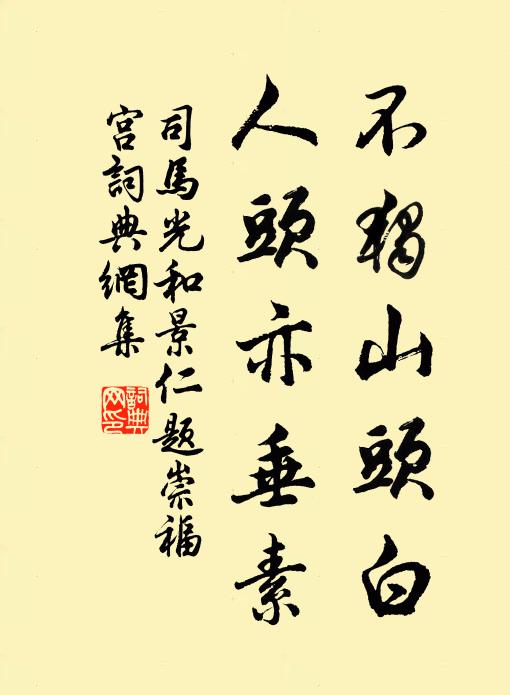 不獨山頭白
人頭亦垂素
司馬光和景仁題崇福
宮詞典網集
詞典网印